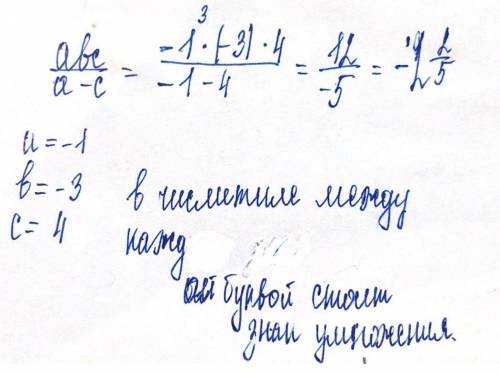 abc/a-c = -1·(-3)·4/-1-4 = 12/-5 = -2 2/5
a = -1
b = -3
c = 4
в числителе между
кажд
ой буквой стоит
знак умножения.